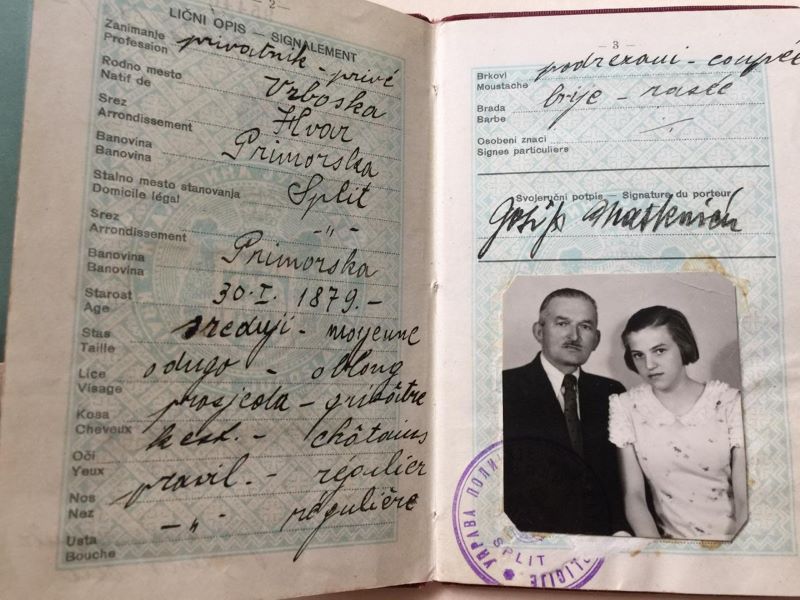 — 2 —
LIČNI OPIS — SIGNALEMENT
Zanimanje privatnik - privé
Profession
Rodno mesto Vrboska
Natif de
Srez Hvar
Arrondissement
Banovina Primorska
Banovina
Stalno mesto stanovanja Split
Domicile légal
Srez -„-
Arrondissement
Banovina Primorska
Banovina
Starost 30.I. 1879.-
Age
Stas srednji - moyenne
Taille
Lice odugo - oblong
Visage
Kosa prosjeda - grisâtre
Cheveux
Oči kest. - châtains
Yeux
Nos pravil. - régulier
Nez
Usta -„- régulière
Bouche
— 3 —
Brkovi podrezani - coupée
Moustache
Brada brije - rasée
Barbe
Osobeni znaci
Signes particuliers
Svojeručni potpis — Signature du porteur
Josip
УПРАВА ПОЛИ
SPLIT
OLICIJE